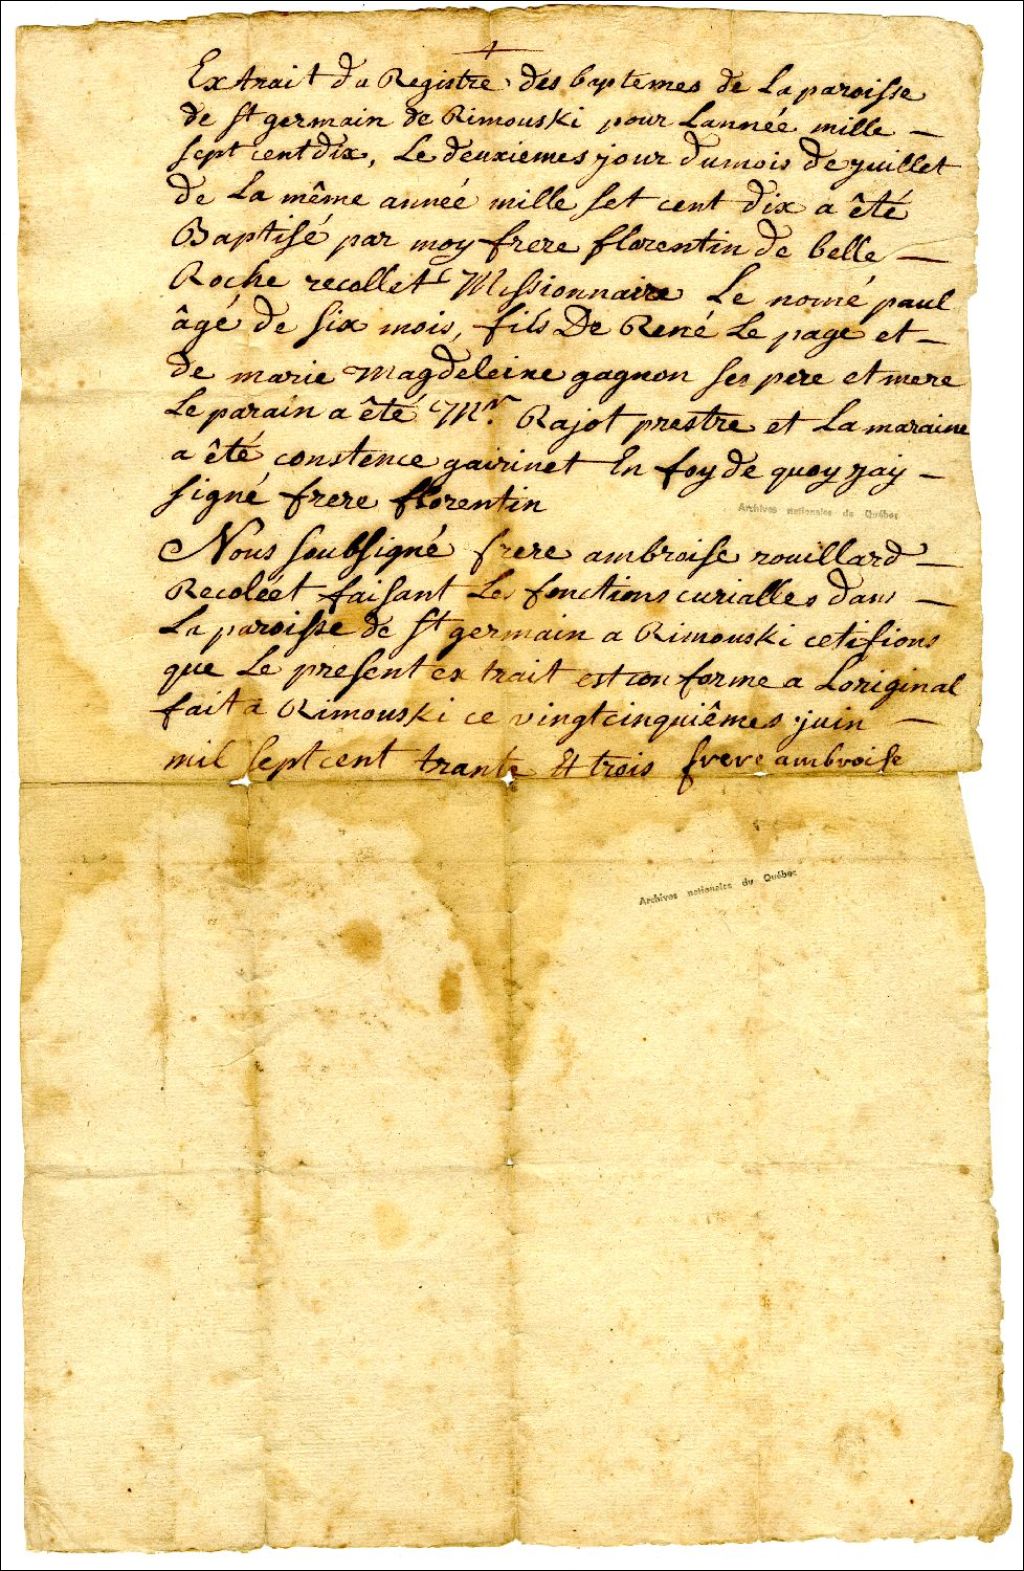 Extrait du Registre des baptemes de La paroisse
de st germain de Rimouski pour Lannéé mille —
sept cent dix, Le deuxiemes jour du mois de juillet
de La même annéé mille set cent dix a êté
Baptisé par moy frere florentin de belle —
Roche recollet Missionnaire Le nomé paul
âgé de six mois, fils De René Le page et —
de marie Magdeleine gagnon ses pere et mere
Le parain a êté Mr. Rajot prestre et La maraine
a êté constence gairinet En foy de quoy jay —
signé frere florentin
Archives nationales du Québec
Nous soubsigné frere ambroise rouillard —
Recoléet faisant Les fonctions curialles dans —
La paroisse de st germain a Rimouski cetifions
que Le present extrait est conforme a Loriginal
fait a Rimouski ce vingt cinquiêmes juin —
mil sept cent trante Et trois frere ambroise
Archives nationales du Québec